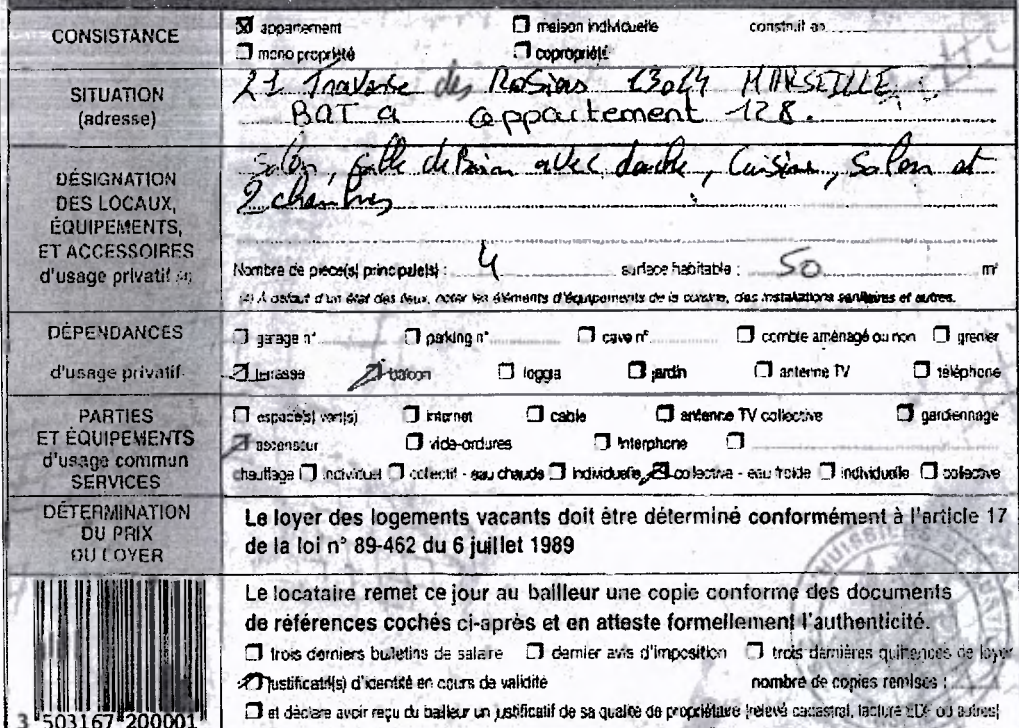 CONSISTANCE
☒ appartement ☐ maison individuelle construit en
☐ mono propriété ☐ copropriété
SITUATION
(adresse)
21 Traverse des Rosiers 13014 MARSEILLE
BAT a appartement 128.
DÉSIGNATION
DES LOCAUX,
ÉQUIPEMENTS,
ET ACCESSOIRES
d'usage privatif
Salon, salle de Bain avec douche, Cuisine, Salon et
2 chambres
Nombre de pièce(s) principale(s) : 4 surface habitable : 50 m²
À défaut d'un état des lieux, noter les éléments d'équipements de la cuisine, des installations sanitaires et autres.
DÉPENDANCES
d'usage privatif
☐ garage n° ☐ parking n° ☐ cave n° ☐ comble aménagé ou non ☐ grenier
☒ terrasse ☒ balcon ☐ loggia ☐ jardin ☐ antenne TV ☐ téléphone
PARTIES
ET ÉQUIPEMENTS
d'usage commun
SERVICES
☐ espace(s) vert(s) ☐ internet ☐ cable ☐ antenne TV collective ☐ gardiennage
☒ ascenseur ☐ vide-ordures ☐ interphone ☐
chauffage ☐ individuel ☐ collectif - eau chaude ☐ individuelle ☒ collective - eau froide ☐ individuelle ☐ collective
DÉTERMINATION
DU PRIX
DU LOYER
Le loyer des logements vacants doit être déterminé conformément à l'article 17
de la loi n° 89-462 du 6 juillet 1989
Le locataire remet ce jour au bailleur une copie conforme des documents
de références cochés ci-après et en atteste formellement l'authenticité.
☐ trois derniers bulletins de salaire ☐ dernier avis d'imposition ☐ trois dernières quittances de loyer
☒ justificatif(s) d'identité en cours de validité nombre de copies remises :
☐ et déclare avoir reçu du bailleur un justificatif de sa qualité de propriétaire (relevé cadastral, facture EDF ou autres)
3 503167 200001